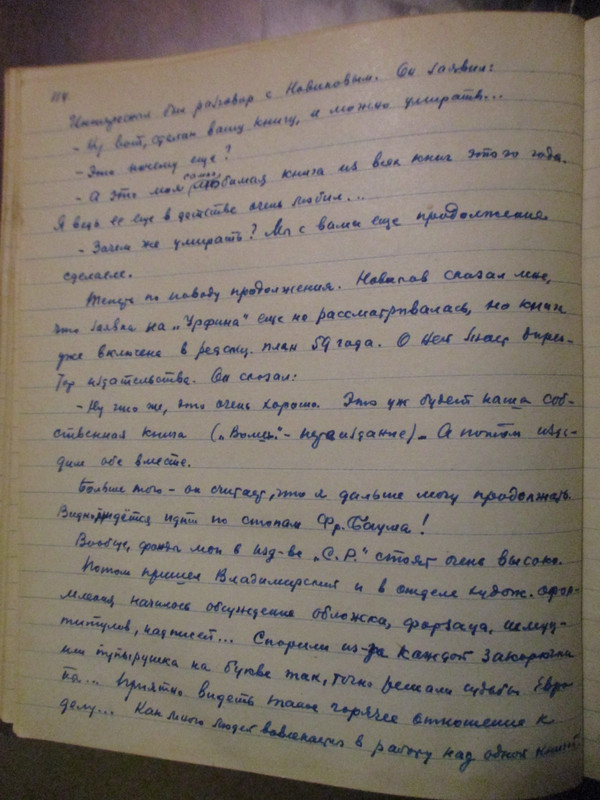 114
Интересный был разговор с Новиковым. Он заявил:
- Ну вот, сделал вашу книгу, и можно умирать...
- Это почему еще?
- А это моя самая любимая книга из всех книг этого года.
Я ведь ее еще в детстве очень любил...
- Зачем же умирать? Мы с вами еще продолжение
сделаем.
Теперь по поводу продолжения. Новиков сказал мне,
что заявка на „Урфина" еще не рассматривалась, но книга
уже включена в редакц. план 59 года. О ней знает дирек-
тор издательства. Он сказал:
- Ну что же, это очень хорошо. Это уж будет наша соб-
ственная книга („Волш." - переиздание). А потом изда-
дим обе вместе.
Больше того - он считает, что я дальше могу продолжать.
Видно, придётся идти по стопам Фр. Баума!
Вообще, фонды мои в изд-ве „С.Р." стоят очень высоко.
Потом пришел Владимирский и в отделе худож. офор-
мления началось обсуждение обложки, форзаца, шмуц-
титулов, надписей... Спорили из-за каждой закорючки
или пупырушка на букве так, точно решали судьбы Евро-
пы... Приятно видеть такое горячее отношение к
делу... Как много людей вовлекается в работу над одной книгой!